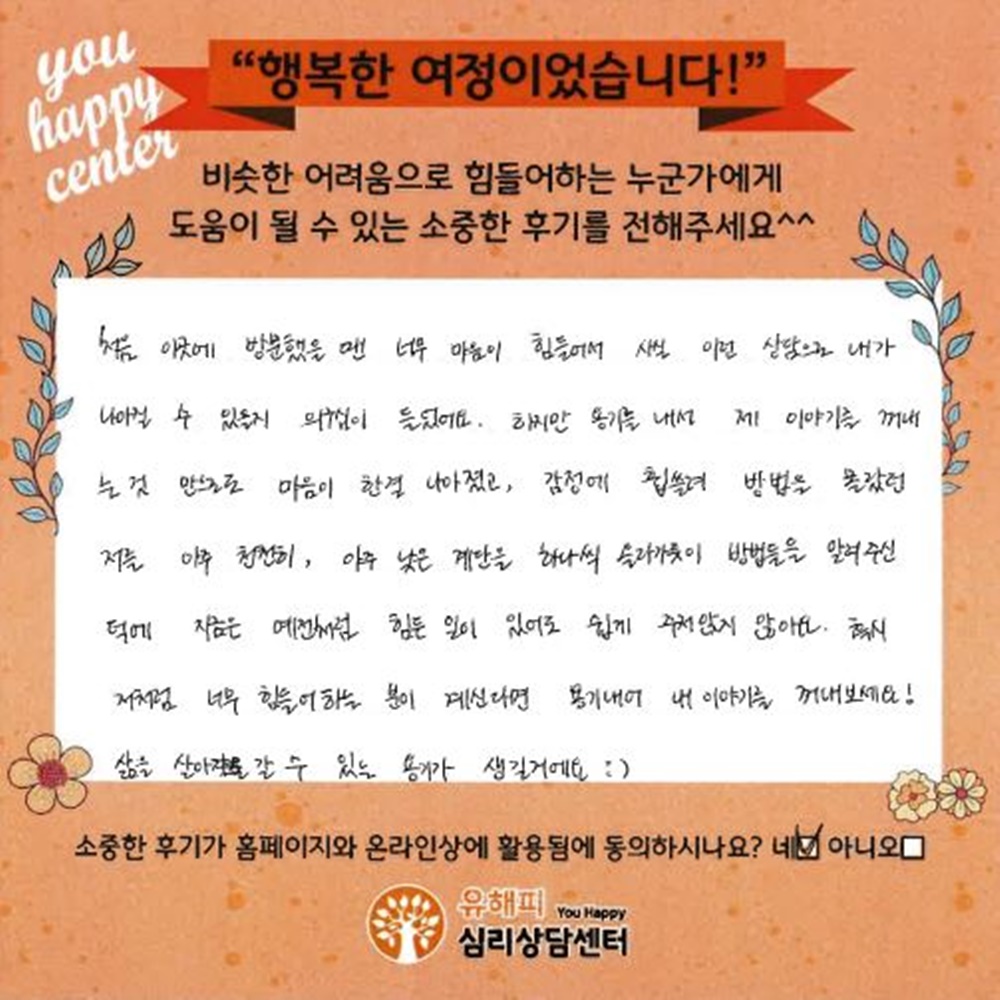 you
happy
center
“행복한 여정이었습니다!”
비슷한 어려움으로 힘들어하는 누군가에게
도움이 될 수 있는 소중한 후기를 전해주세요^^
처음 이곳에 방문했을 땐 너무 마음이 힘들어서 사실 이런 상담으로 내가
나아질 수 있을지 의구심이 들었어요. 하지만 용기를 내서 제 이야기를 꺼내
는 것 만으로도 마음이 한결 나아졌고, 감정에 휩쓸려 방법을 몰랐던
저를 아주 천천히, 아주 낮은 계단을 하나씩 올라가듯이 방법들을 알려주신
덕에 지금은 예전처럼 힘든 일이 있어도 쉽게 주저앉지 않아요. 혹시
저처럼 너무 힘들어하는 분이 계신다면 용기내어 내 이야기를 꺼내보세요!
삶을 살아갈 수 있는 용기가 생길거에요 :)
소중한 후기가 홈페이지와 온라인상에 활용됨에 동의하시나요? 네☑ 아니오☐
유해피 You Happy
심리상담센터